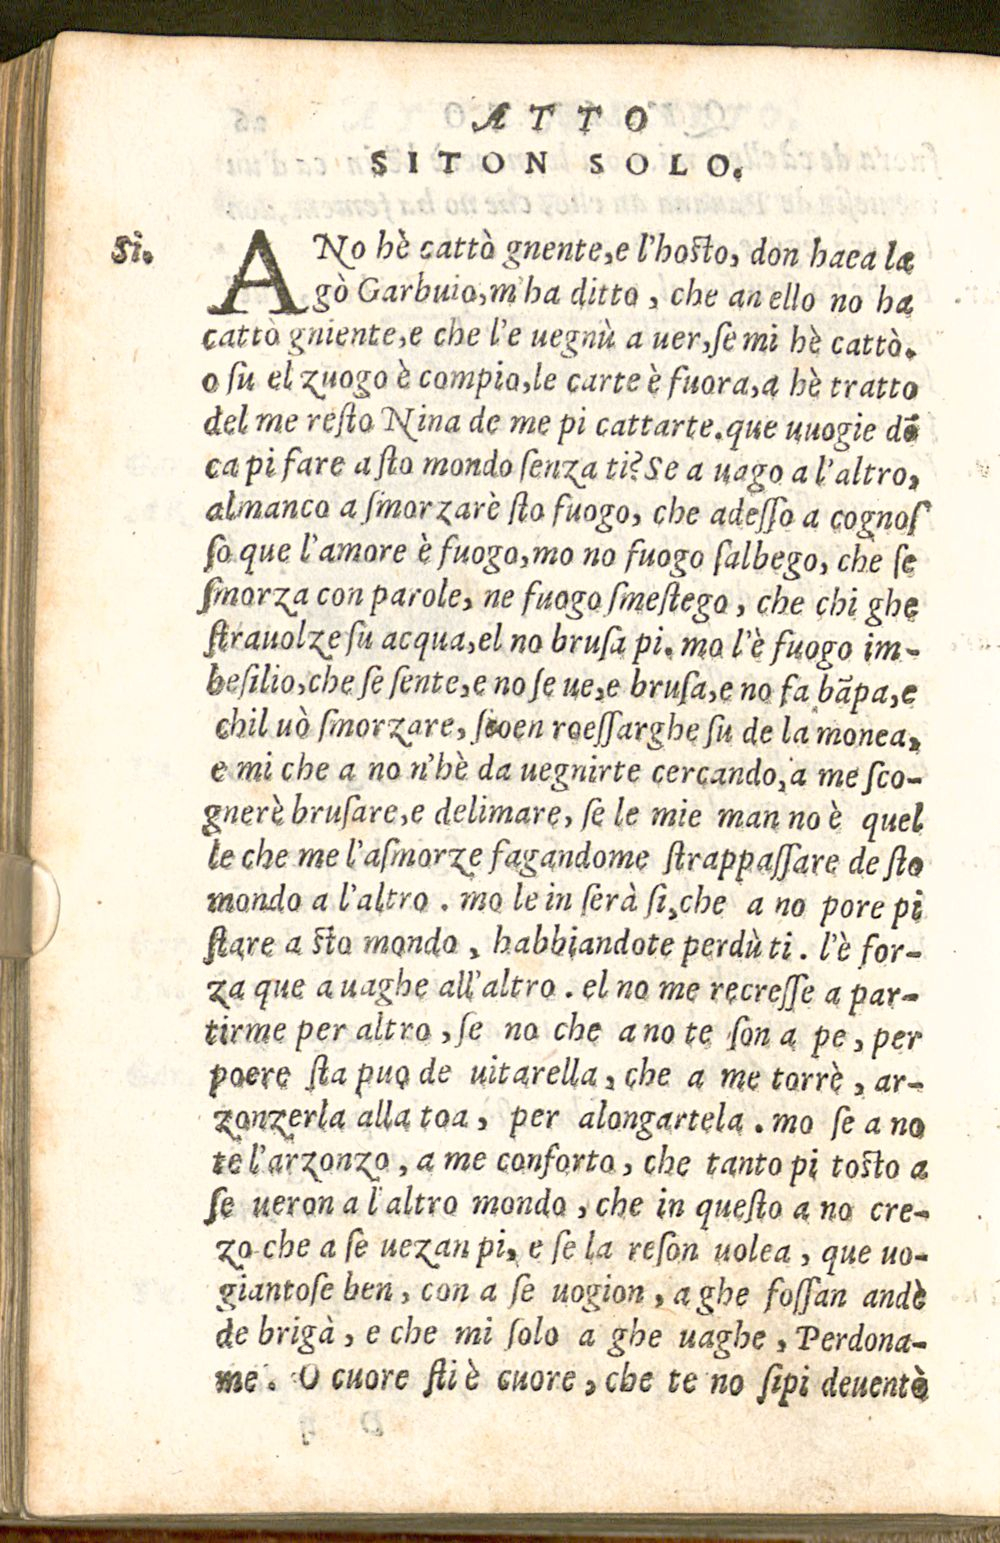 ATTO
SITON SOLO.
Si. ANo hè cattò gnente, e l'hosto, don haea la
gò Garbuio, m'ha ditto, che an ello no ha
cattò gniente, e che l'e uegnù a uer, se mi hè cattò.
o su el zuogo è compio, le carte è fuora, a hè tratto
del me resto Nina de me pi cattarte. que uuogie dō
ca pi fare a sto mondo senza ti? Se a uago a l'altro,
almanco a smorzarè sto fuogo, che adesso a cognos
so que l'amore è fuogo, mo no fuogo salbego, che se
smorza con parole, ne fuogo smestego, che chi ghe
strauolze su acqua, el no brusa pi. mo l'è fuogo im-
besilio, che se sente, e no se ue, e brusa, e no fa bāpa, e
chil uò smorzare, scoen roessarghe su de la monea,
e mi che a no n'hè da uegnirte cercando, a me sco-
gnerè brusare, e delimare, se le mie man no è quel
le che me l'asmorze fagandome strappassare de sto
mondo a l'altro. mo le in serà si, che a no pore pi
stare a sto mondo, habbiandote perdù ti. l'è for-
za que a uaghe all'altro. el no me recresse a par-
tirme per altro, se no che a no te son a pe, per
poere sta puo de uitarella, che a me torrè, ar-
zonzerla alla toa, per alongartela. mo se a no
te l'arzonzo, a me conforto, che tanto pi tosto a
se ueron a l'altro mondo, che in questo a no cre-
zo che a se uezan pi, e se la reson uolea, que uo-
giantose ben, con a se uogion, a ghe fossan andè
de brigà, e che mi solo a ghe uaghe, Perdona-
me. O cuore sti è cuore, che te no sipi deuentò